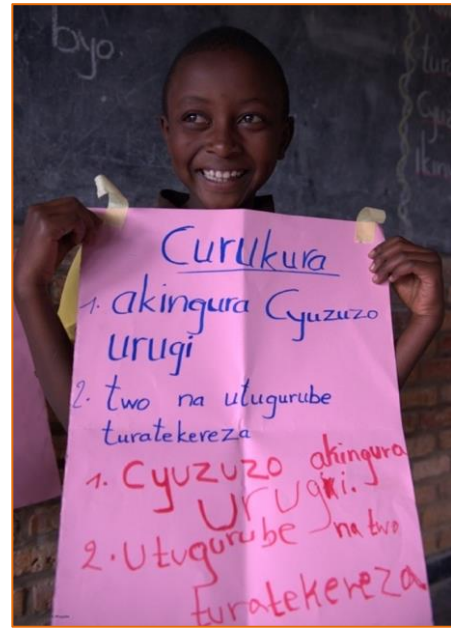 byo
Curukura
1. akingura Cyuzuzo
urugi
2. two na utugurube
turatekereza
1. Cyuzuzo akingura
urugi.
2. Utugurube na two
turatekereza